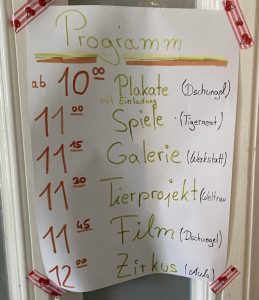 Programm
ab 10⁰⁰ Plakate (Dschungel)
mit Einladung
11⁰⁰ Spiele (Tigernest)
11¹⁵ Galerie (Werkstatt)
11³⁰ Tierprojekt (Weltraum
11⁴⁵ Film (Dschungel)
12⁰⁰ Zirkus (Aula)